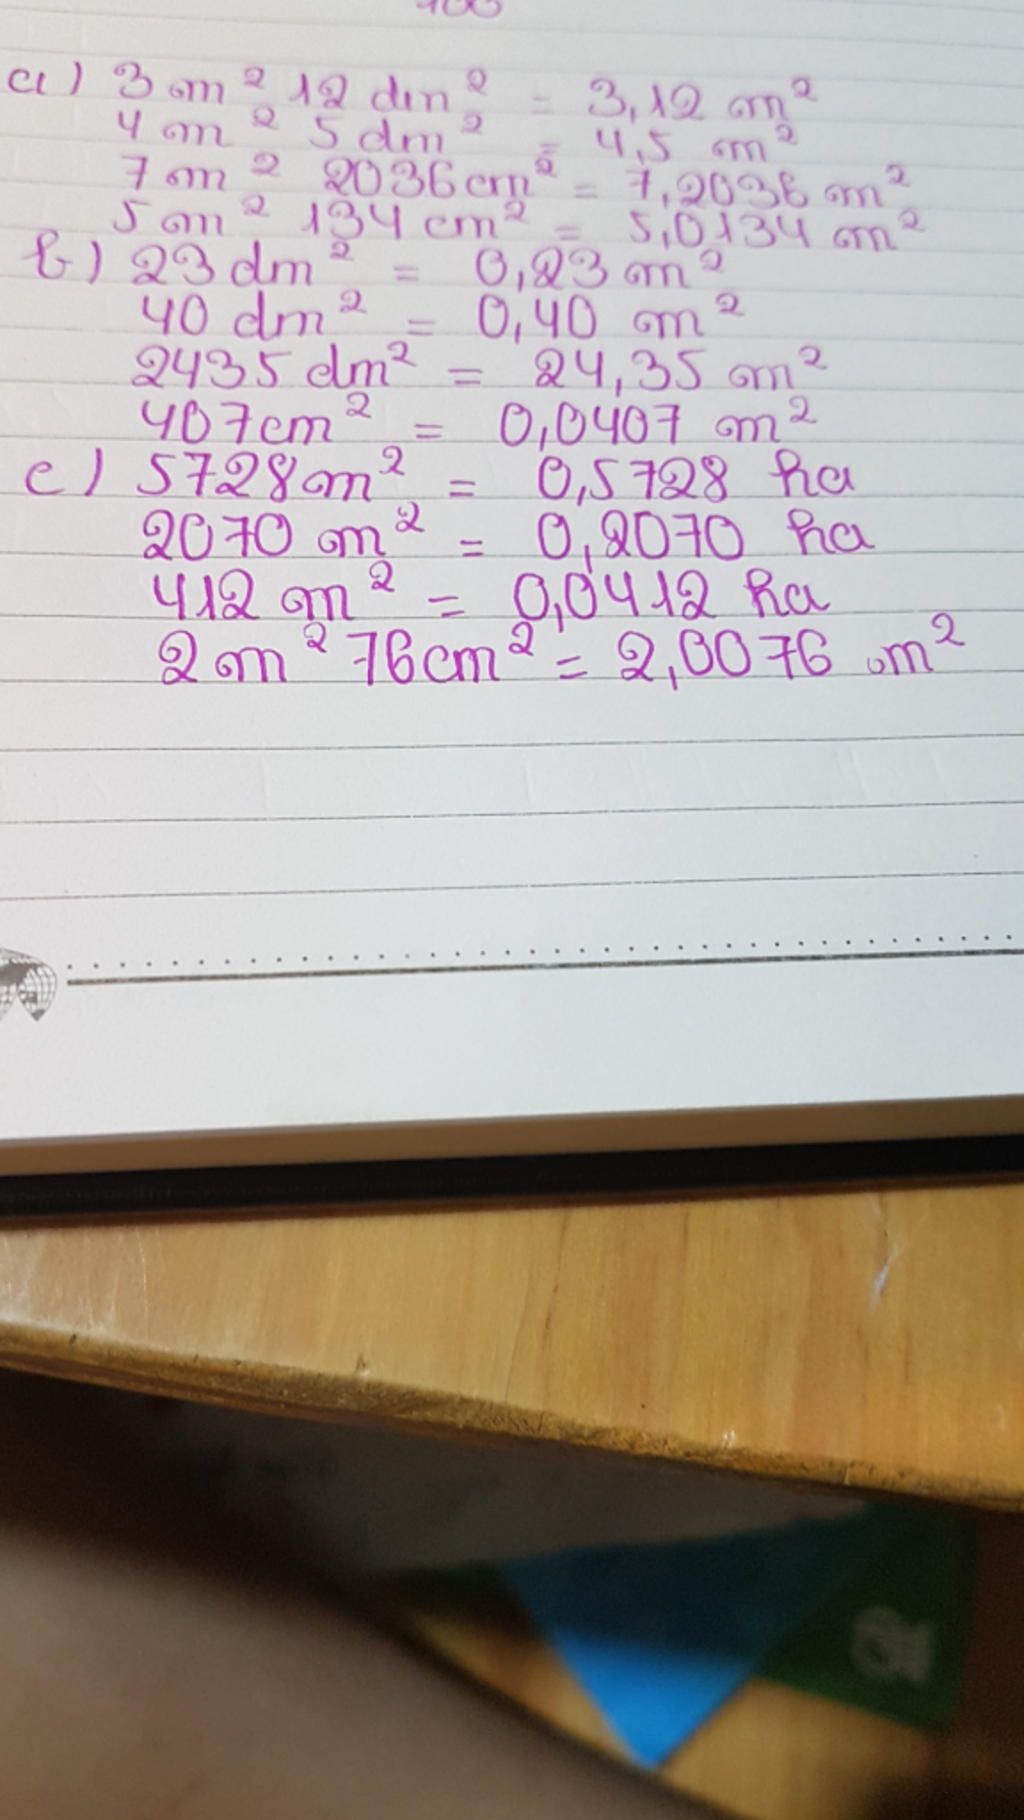 a) 3 m² 12 dm² = 3,12 m²
4 m² 5 dm² = 4,5 m²
7 m² 2036 cm² = 7,2036 m²
5 m² 134 cm² = 5,0134 m²
b) 23 dm² = 0,23 m²
40 dm² = 0,40 m²
2435 dm² = 24,35 m²
407 cm² = 0,0407 m²
c) 5728 m² = 0,5728 ha
2070 m² = 0,2070 ha
412 m² = 0,0412 ha
2 m² 76 cm² = 2,0076 m²